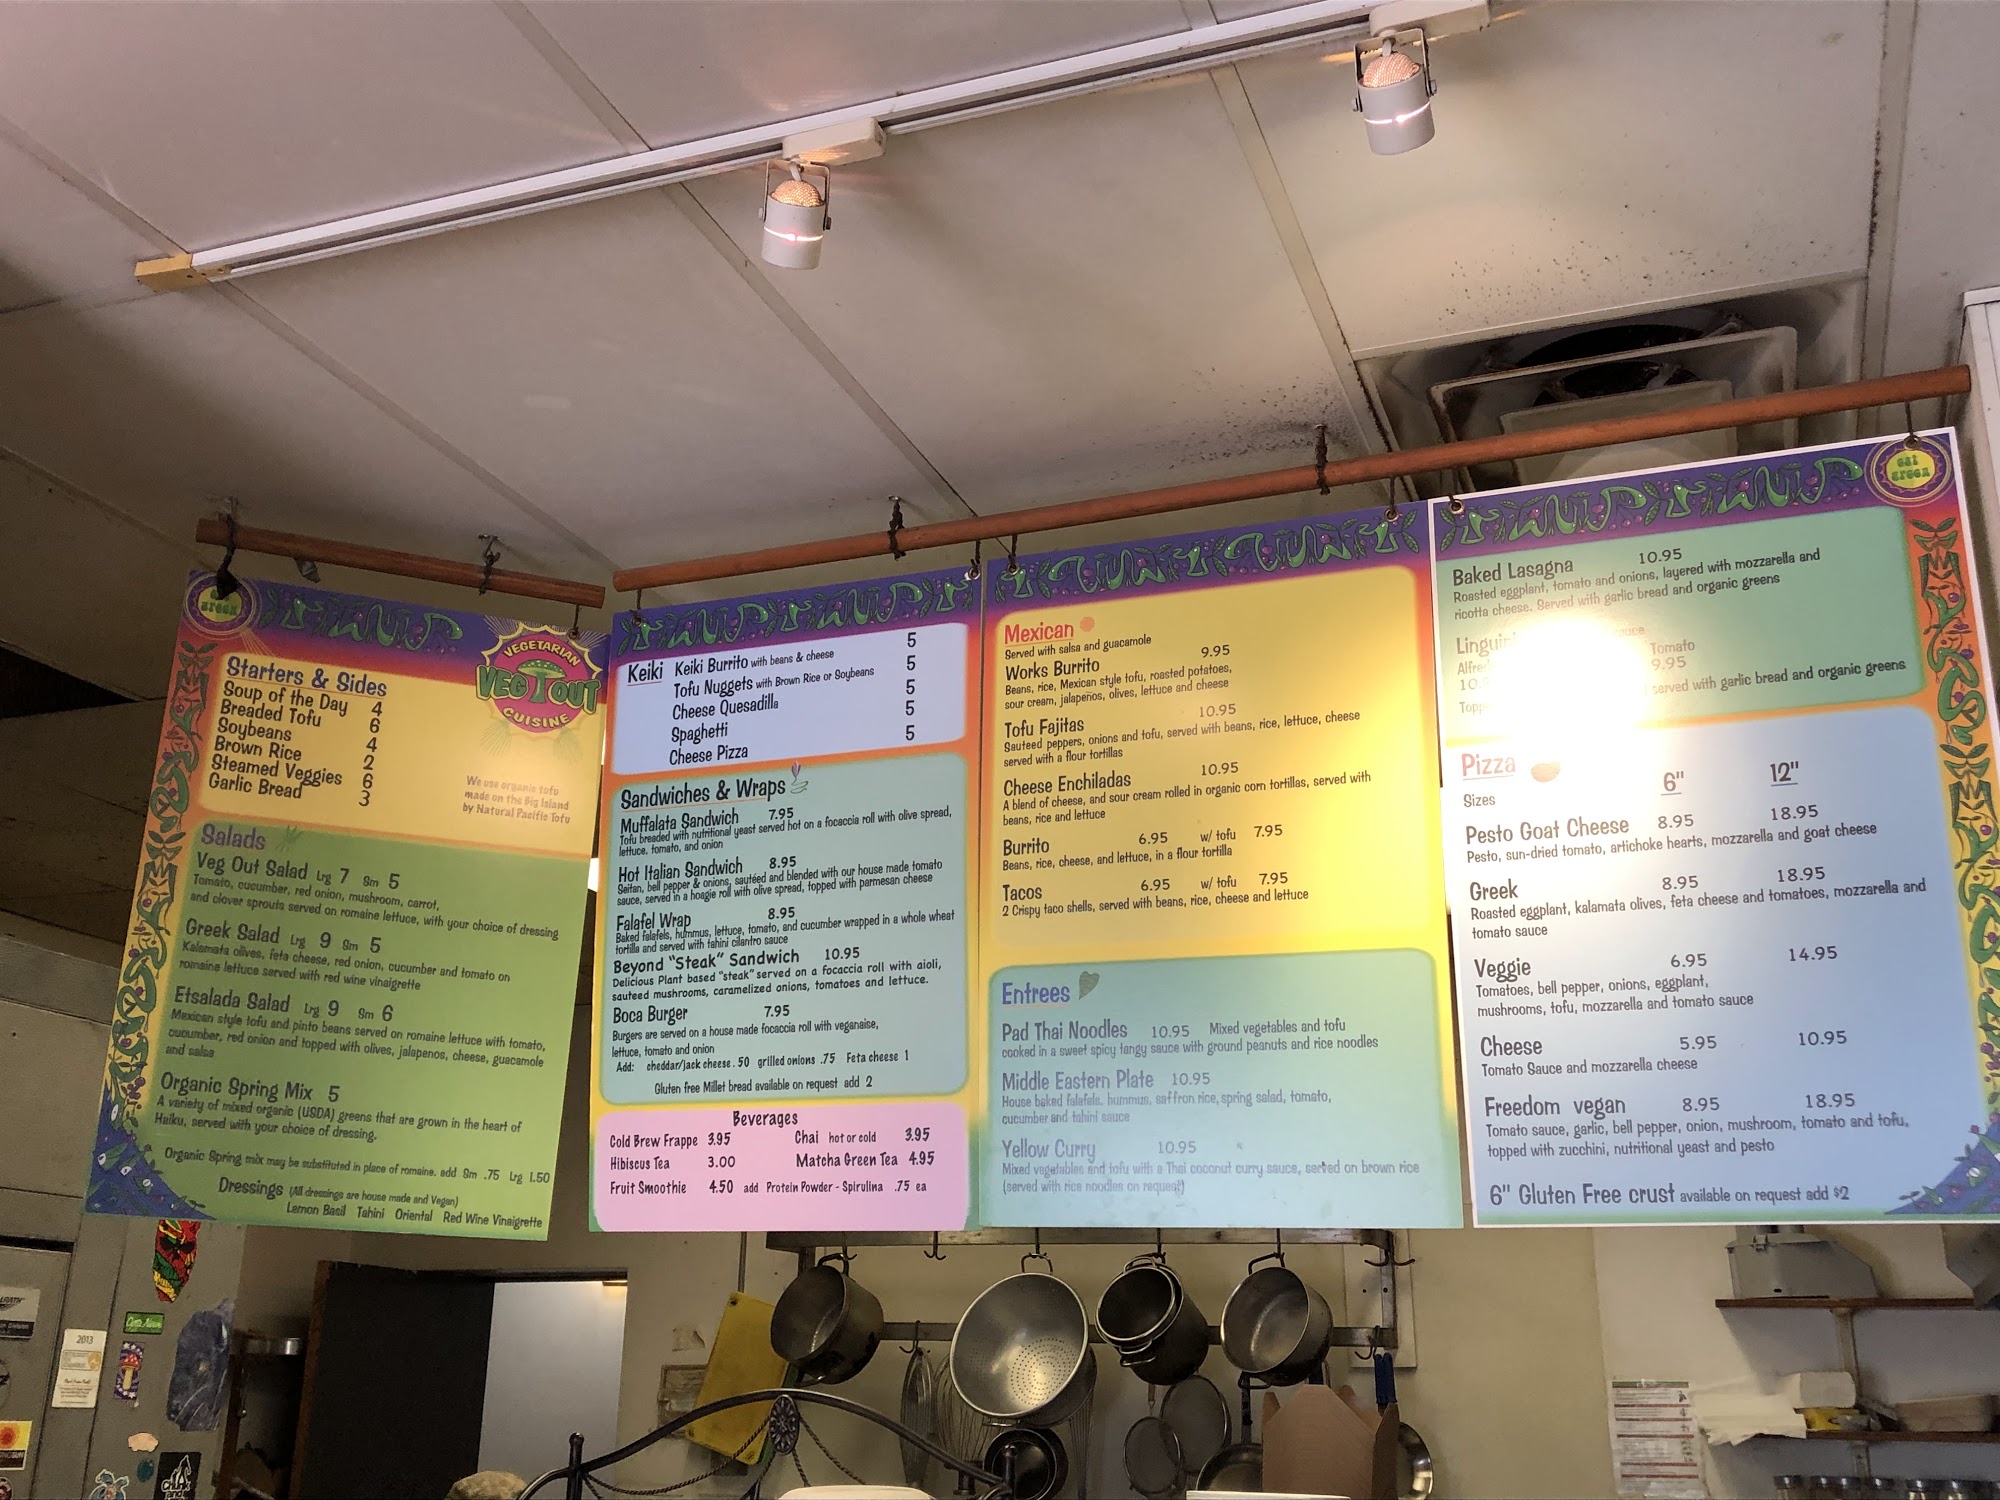 eat green
VEGETARIAN
VEG OUT
CUISINE
Starters & Sides
Soup of the Day 4
Breaded Tofu 6
Soybeans 4
Brown Rice 2
Steamed Veggies 6
Garlic Bread 3
We use organic tofu
made on the Big Island
by Natural Pacific Tofu
Salads
Veg Out Salad Lrg 7 Sm 5
Tomato, cucumber, red onion, mushroom, carrot,
and clover sprouts served on romaine lettuce, with your choice of dressing
Greek Salad Lrg 9 Sm 5
Kalamata olives, feta cheese, red onion, cucumber and tomato on
romaine lettuce served with red wine vinaigrette
Etsalada Salad Lrg 9 Sm 6
Mexican style tofu and pinto beans served on romaine lettuce with tomato,
cucumber, red onion and topped with olives, jalapenos, cheese, guacamole
and salsa
Organic Spring Mix 5
A variety of mixed organic (USDA) greens that are grown in the heart of
Haiku, served with your choice of dressing.
Organic Spring mix may be substituted in place of romaine. add Sm .75 Lrg 1.50
Dressings (All dressings are house made and Vegan)
Lemon Basil Tahini Oriental Red Wine Vinaigrette
Keiki Keiki Burrito with beans & cheese 5
Tofu Nuggets with Brown Rice or Soybeans 5
Cheese Quesadilla 5
Spaghetti 5
Cheese Pizza 5
Sandwiches & Wraps
Muffalata Sandwich 7.95
Tofu breaded with nutritional yeast served hot on a focaccia roll with olive spread,
lettuce, tomato, and onion
Hot Italian Sandwich 8.95
Seitan, bell pepper & onions, sautéed and blended with our house made tomato
sauce, served in a hoagie roll with olive spread, topped with parmesan cheese
Falafel Wrap 8.95
Baked falafels, hummus, lettuce, tomato, and cucumber wrapped in a whole wheat
tortilla and served with tahini cilantro sauce
Beyond "Steak" Sandwich 10.95
Delicious Plant based "steak" served on a focaccia roll with aioli,
sauteed mushrooms, caramelized onions, tomatoes and lettuce.
Boca Burger 7.95
Burgers are served on a house made focaccia roll with veganaise,
lettuce, tomato and onion
Add: cheddar/jack cheese .50 grilled onions .75 Feta cheese 1
Gluten free Millet bread available on request add 2
Beverages
Cold Brew Frappe 3.95 Chai hot or cold 3.95
Hibiscus Tea 3.00 Matcha Green Tea 4.95
Fruit Smoothie 4.50 add Protein Powder - Spirulina .75 ea
Mexican
Served with salsa and guacamole
Works Burrito 9.95
Beans, rice, Mexican style tofu, roasted potatoes,
sour cream, jalapeños, olives, lettuce and cheese
Tofu Fajitas 10.95
Sauteed peppers, onions and tofu, served with beans, rice, lettuce, cheese
served with a flour tortillas
Cheese Enchiladas 10.95
A blend of cheese, and sour cream rolled in organic corn tortillas, served with
beans, rice and lettuce
Burrito 6.95 w/ tofu 7.95
Beans, rice, cheese, and lettuce, in a flour tortilla
Tacos 6.95 w/ tofu 7.95
2 Crispy taco shells, served with beans, rice, cheese and lettuce
Entrees
Pad Thai Noodles 10.95 Mixed vegetables and tofu
cooked in a sweet spicy tangy sauce with ground peanuts and rice noodles
Middle Eastern Plate 10.95
House baked falafels, hummus, saffron rice, spring salad, tomato,
cucumber and tahini sauce
Yellow Curry 10.95
Mixed vegetables and tofu with a Thai coconut curry sauce, served on brown rice
(served with rice noodles on request)
eat green
Baked Lasagna 10.95
Roasted eggplant, tomato and onions, layered with mozzarella and
ricotta cheese. Served with garlic bread and organic greens
Tomato
9.95
served with garlic bread and organic greens
Pizza
Sizes 6" 12"
Pesto Goat Cheese 8.95 18.95
Pesto, sun-dried tomato, artichoke hearts, mozzarella and goat cheese
Greek 8.95 18.95
Roasted eggplant, kalamata olives, feta cheese and tomatoes, mozzarella and
tomato sauce
Veggie 6.95 14.95
Tomatoes, bell pepper, onions, eggplant,
mushrooms, tofu, mozzarella and tomato sauce
Cheese 5.95 10.95
Tomato Sauce and mozzarella cheese
Freedom vegan 8.95 18.95
Tomato sauce, garlic, bell pepper, onion, mushroom, tomato and tofu,
topped with zucchini, nutritional yeast and pesto
6" Gluten Free crust available on request add $2
2013